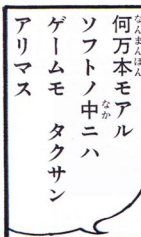 何万本モアル
ソフトノ中ニハ
ゲームモ　タクサン
アリマス